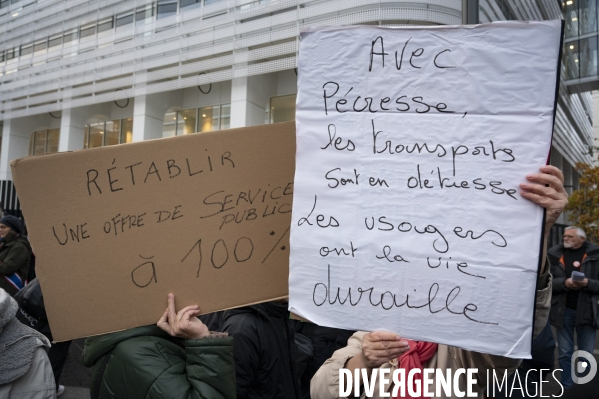 RÉTABLIR
UNE OFFRE DE SERVICE
PUBLIC
à 100%
Avec
Pécresse,
les transports
sont en détresse
Les usagers
ont la vie
duraille
DIVERGENCE images.com